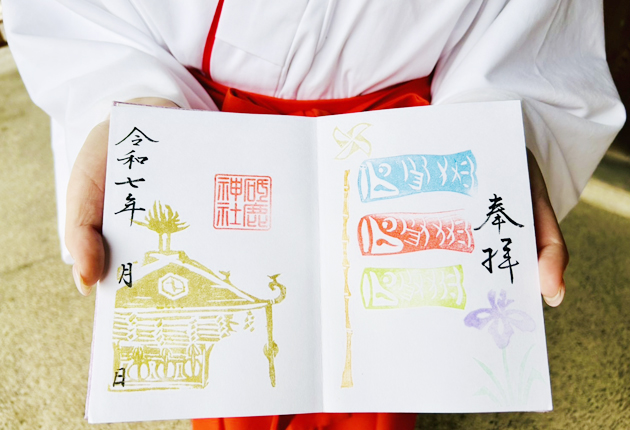 奉拝
砥鹿
神社
令和七年 月 日